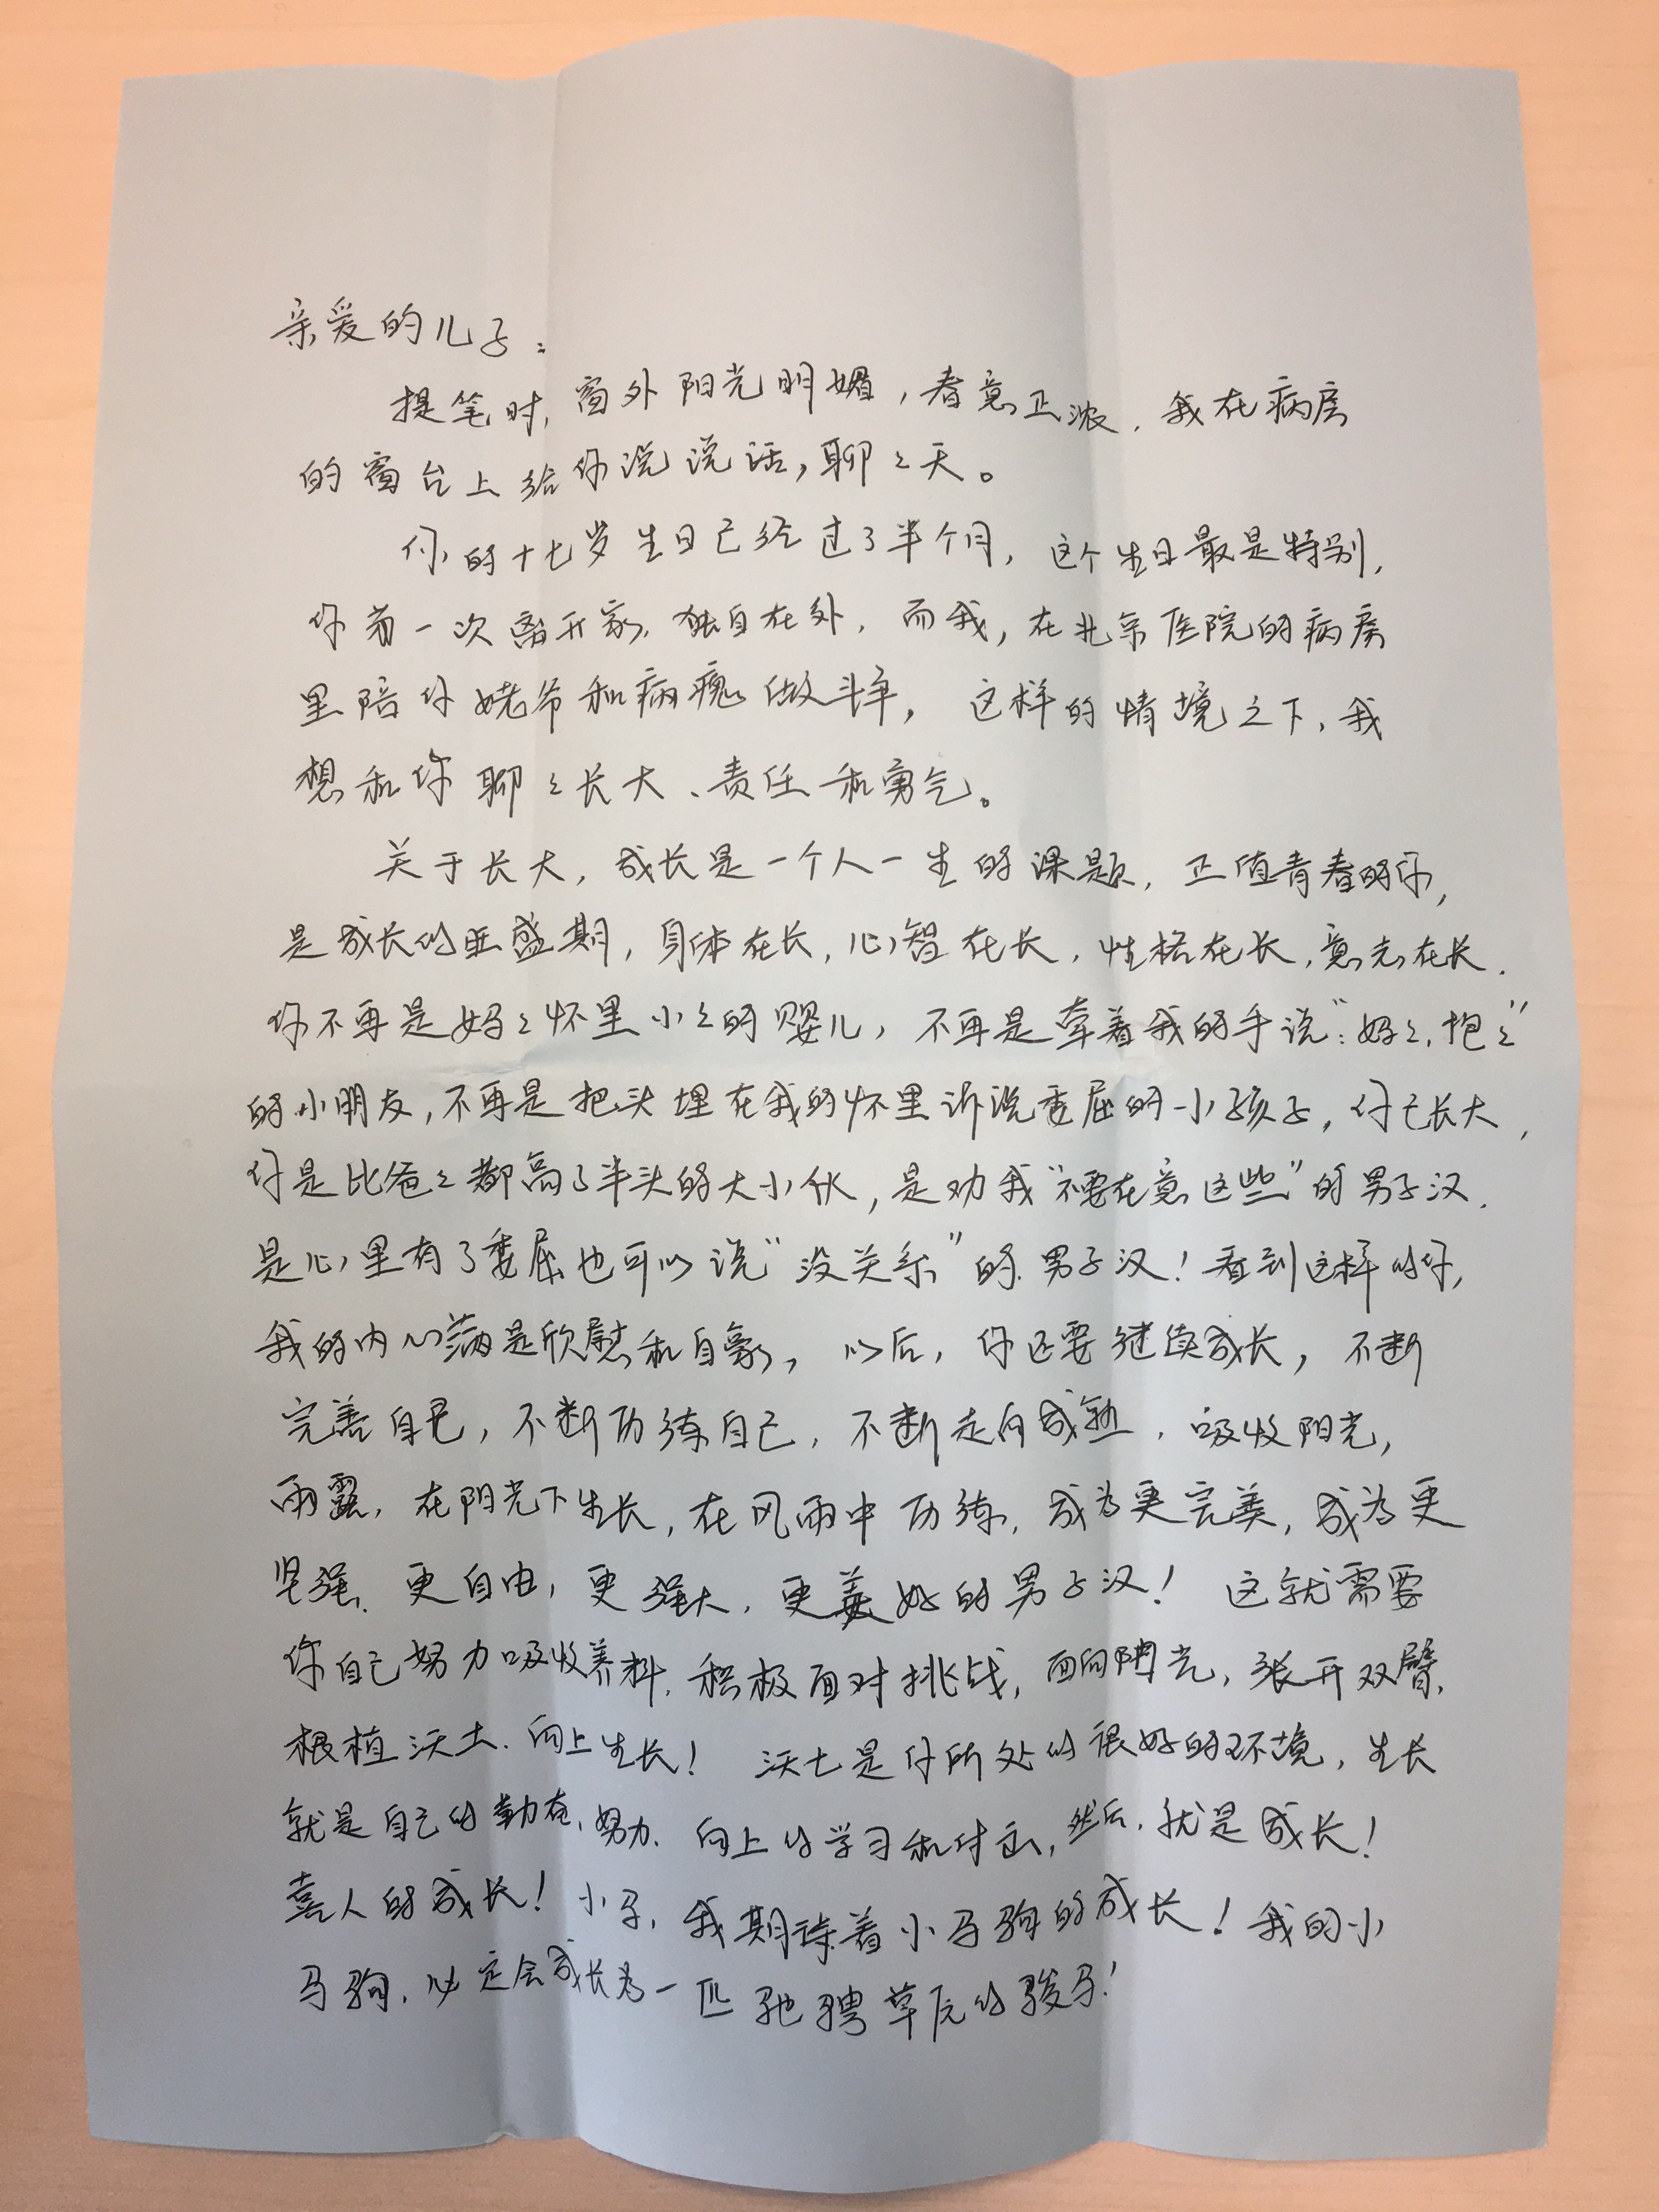 亲爱的儿子：
提笔时,窗外阳光明媚,春意正浓,我在病房
的窗台上给你说说话,聊々天。
你的十七岁生日已经过了半个月,这个生日最是特别,
你第一次离开家,独自在外,而我,在北京医院的病房
里陪你姥爷和病魔做斗争,这样的情境之下,我
想和你聊々长大、责任和勇气。
关于长大,成长是一个人一生的课题,正值青春的你,
是成长的旺盛期,身体在长,心智在长,性格在长,意志在长.
你不再是妈々怀里小々的婴儿,不再是牵着我的手说:“妈々,抱々”
的小朋友,不再是把头埋在我的怀里诉说委屈的小孩子,你已长大,
你是比爸々都高了半头的大小伙,是劝我“不要在意这些”的男子汉.
是心里有了委屈也可以说“没关系”的男子汉!看到这样的你,
我的内心满是欣慰和自豪,以后,你还要继续成长,不断
完善自己,不断历练自己,不断走向成熟,吸收阳光,
雨露,在阳光下生长,在风雨中历练,成为更完美,成为更
坚强、更自由,更强大,更美好的男子汉!这就需要
你自己努力吸收养料,积极面对挑战,面向阳光,张开双臂,
根植沃土、向上生长!沃土是你所处的很好的环境,生长
就是自己的勤奋、努力、向上的学习和付出,然后,就是成长!
喜人的成长!小子,我期待着小马驹的成长!我的小
马驹,必定会成长为一匹驰骋草原的骏马!